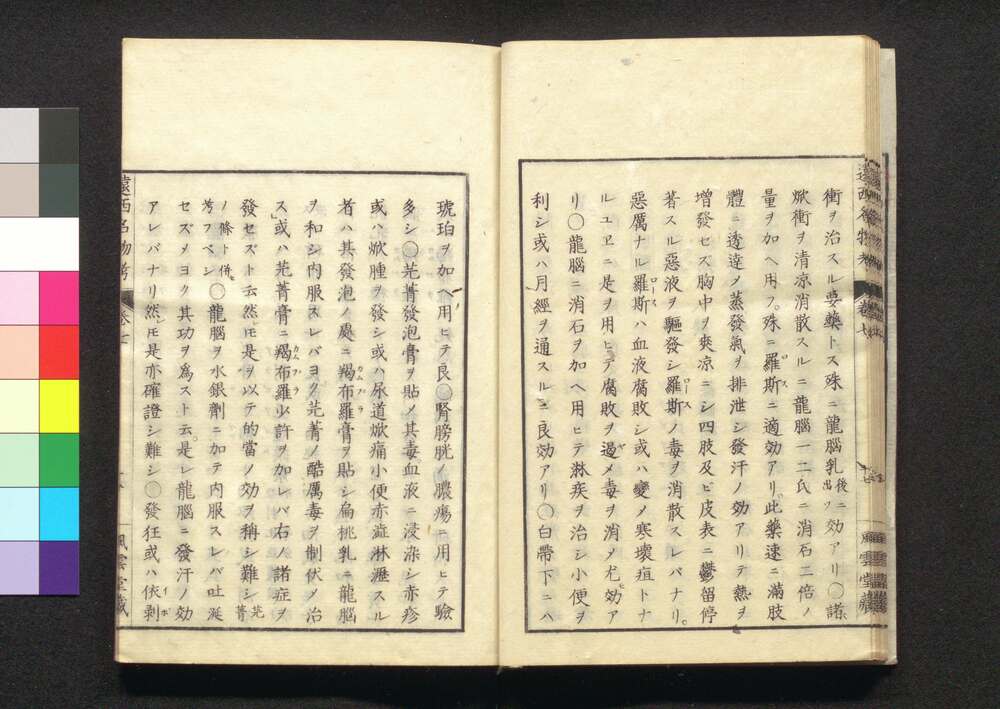 衝ヲ治スル要藥トス殊ニ龍腦乳後ニ出ツ效アリ〇諸
焮衝ヲ清涼消散スルニ龍腦一二氏ニ消石二倍ノ
量ヲ加ヘ用フ。殊ニ羅斯ロースニ適効アリ此藥速ニ滿肢
體ニ透達ノ蒸發氣ヲ排泄シ發汗ノ効アリテ熱ヲ
增發セズ胸中ヲ爽涼ニシ四肢及ビ皮表ニ鬱留停
著スル惡液ヲ驅發シ羅斯ロースノ毒ヲ消散スレバナリ。
惡厲ナル羅斯ロースハ血液腐敗シ或ハ變メ寒壞疽トナ
ルユヱニ是ヲ用ヒテ腐敗ヲ遏メ毒ヲ消メ尤モ効ア
リ〇龍腦ニ消石ヲ加ヘ用ヒテ淋疾ヲ治シ小便ヲ
利シ或ハ月經ヲ通スルニ良効アリ〇白帶下ニハ
琥珀ヲ加ヘ用ヒテ良〇腎膀胱ノ膿瘍ニ用ヒテ驗
多シ〇芫菁發泡膏ヲ貼メ其毒血液ニ浸染シ赤疹
或ハ焮腫ヲ發シ或ハ尿道焮痛小便赤澁淋瀝スル
者ハ其發泡ノ處ニ羯布羅カムフラ膏ヲ貼シ扁桃乳ニ龍腦
ヲ和シ内服スレバヨク芫菁ノ酷厲毒ヲ制伏メ治
ス或ハ芫菁膏ニ羯布羅カムフラ少許ヲ加レバ右ノ諸症ヲ
發セズト云然𪜈是ヲ以テ的當ノ効ヲ稱シ難シ芫菁
ノ條ト併セ考フベシ〇龍腦ヲ水銀劑ニ加テ内服スレバ吐涎
セズメヨク其功ヲ爲スト云。是レ龍腦ニ發汗ノ効
アレバナリ然𪜈是亦確證シ難シ〇發狂或ハ依剥イポ
遠西名物考
卷七
風雲堂藏